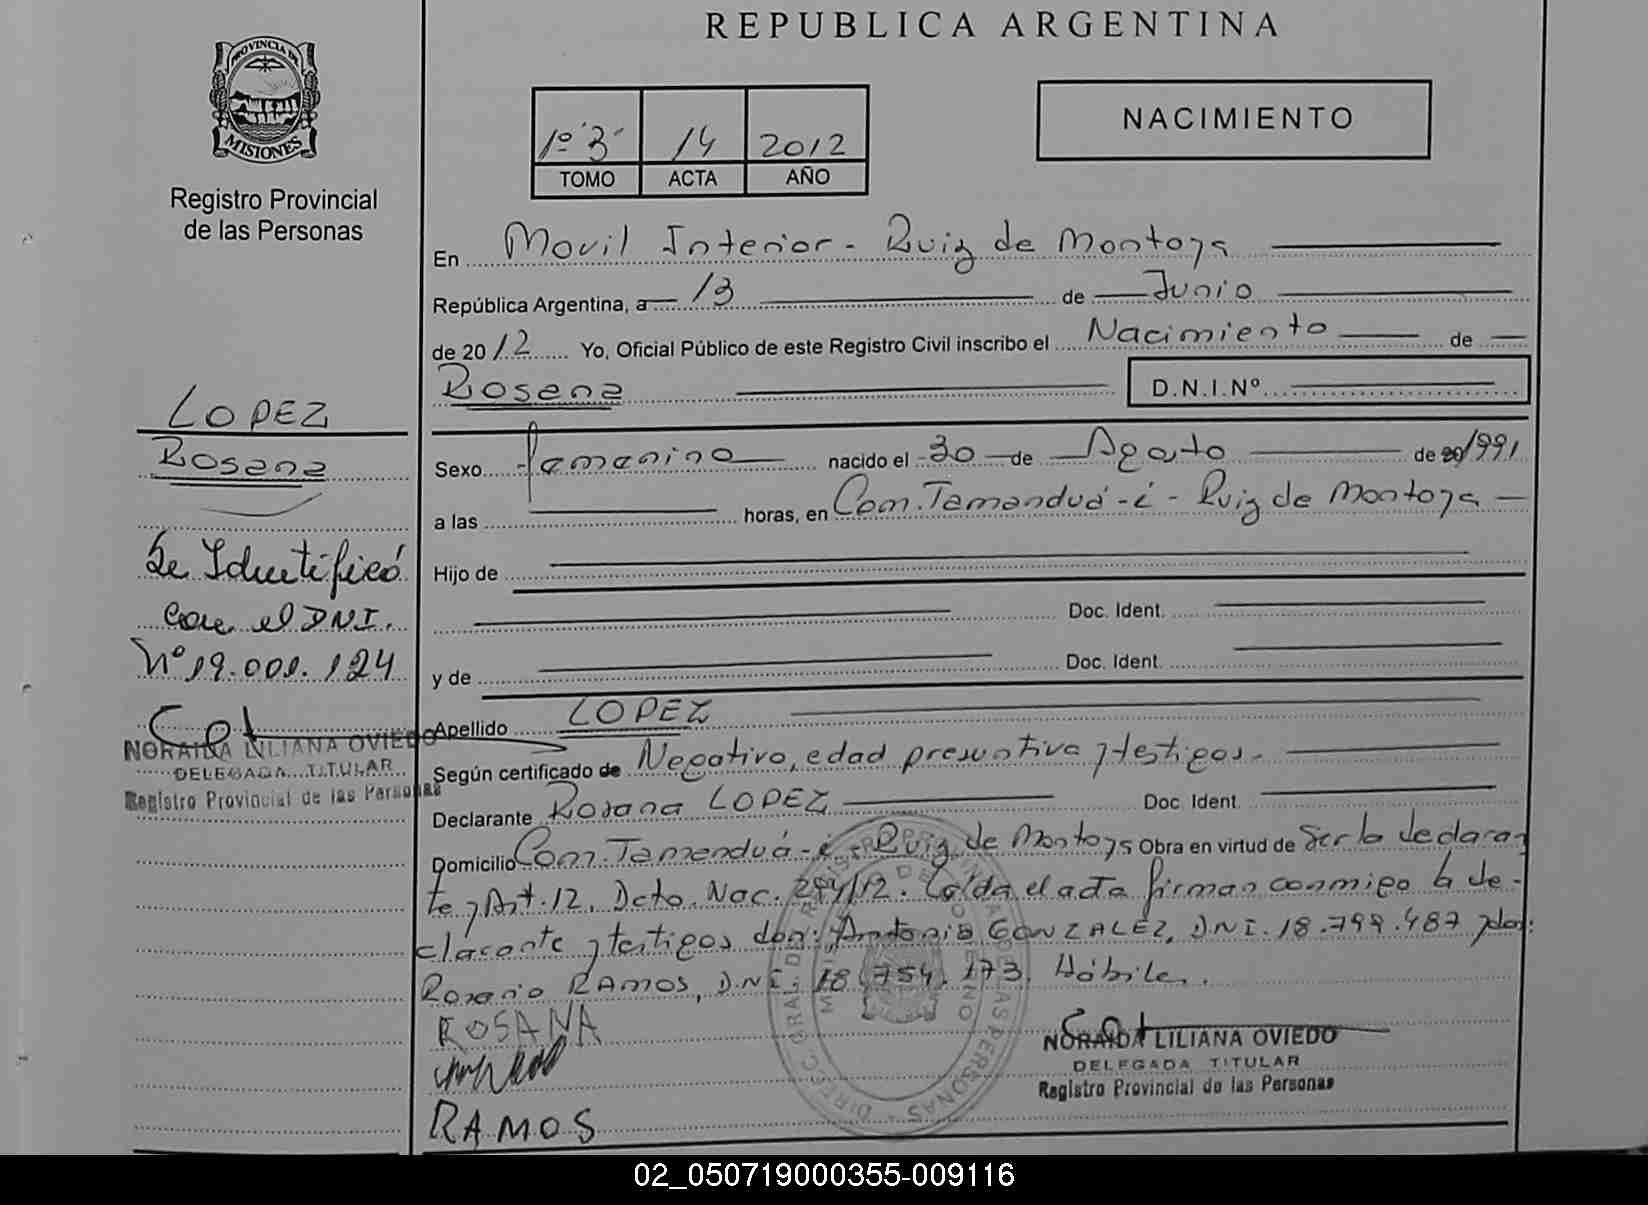 REPUBLICA ARGENTINA
PROVINCIA DE
MISIONES
Registro Provincial
de las Personas
1º "3" 14 2012
TOMO ACTA AÑO
NACIMIENTO
En Movil Interior - Ruiz de Montoya
República Argentina, a 13 de Junio
de 2012 Yo, Oficial Público de este Registro Civil inscribo el Nacimiento de
Rosana D.N.I.Nº
LOPEZ
Rosana
Se Identificó
con el DNI.
Nº 19.001.124
NORAIDA LILIANA OVIEDO
DELEGADA TITULAR
Registro Provincial de las Personas
Sexo femenino nacido el 30 de Agosto de 20 1991
a las horas, en Com. Tamanduá-í - Ruiz de Montoya
Hijo de
Doc. Ident.
y de Doc. Ident.
Apellido LOPEZ
Según certificado de Negativo, edad presuntiva y testigos.
Declarante Rosana LOPEZ Doc. Ident.
Domicilio Com. Tamanduá-í - Ruiz de Montoya Obra en virtud de Ser la declaran
te y Art. 12. Dcto. Nac. 294/12. Leída el acta firman conmigo la de-
clarante y testigos don: Antonio GONZALEZ, DNI. 18.799.487 y don:
Rosario RAMOS, D.N.I. 18.754.173. Hábiles.
ROSANA
RAMOS
NORAIDA LILIANA OVIEDO
DELEGADA TITULAR
Registro Provincial de las Personas
02_050719000355-009116